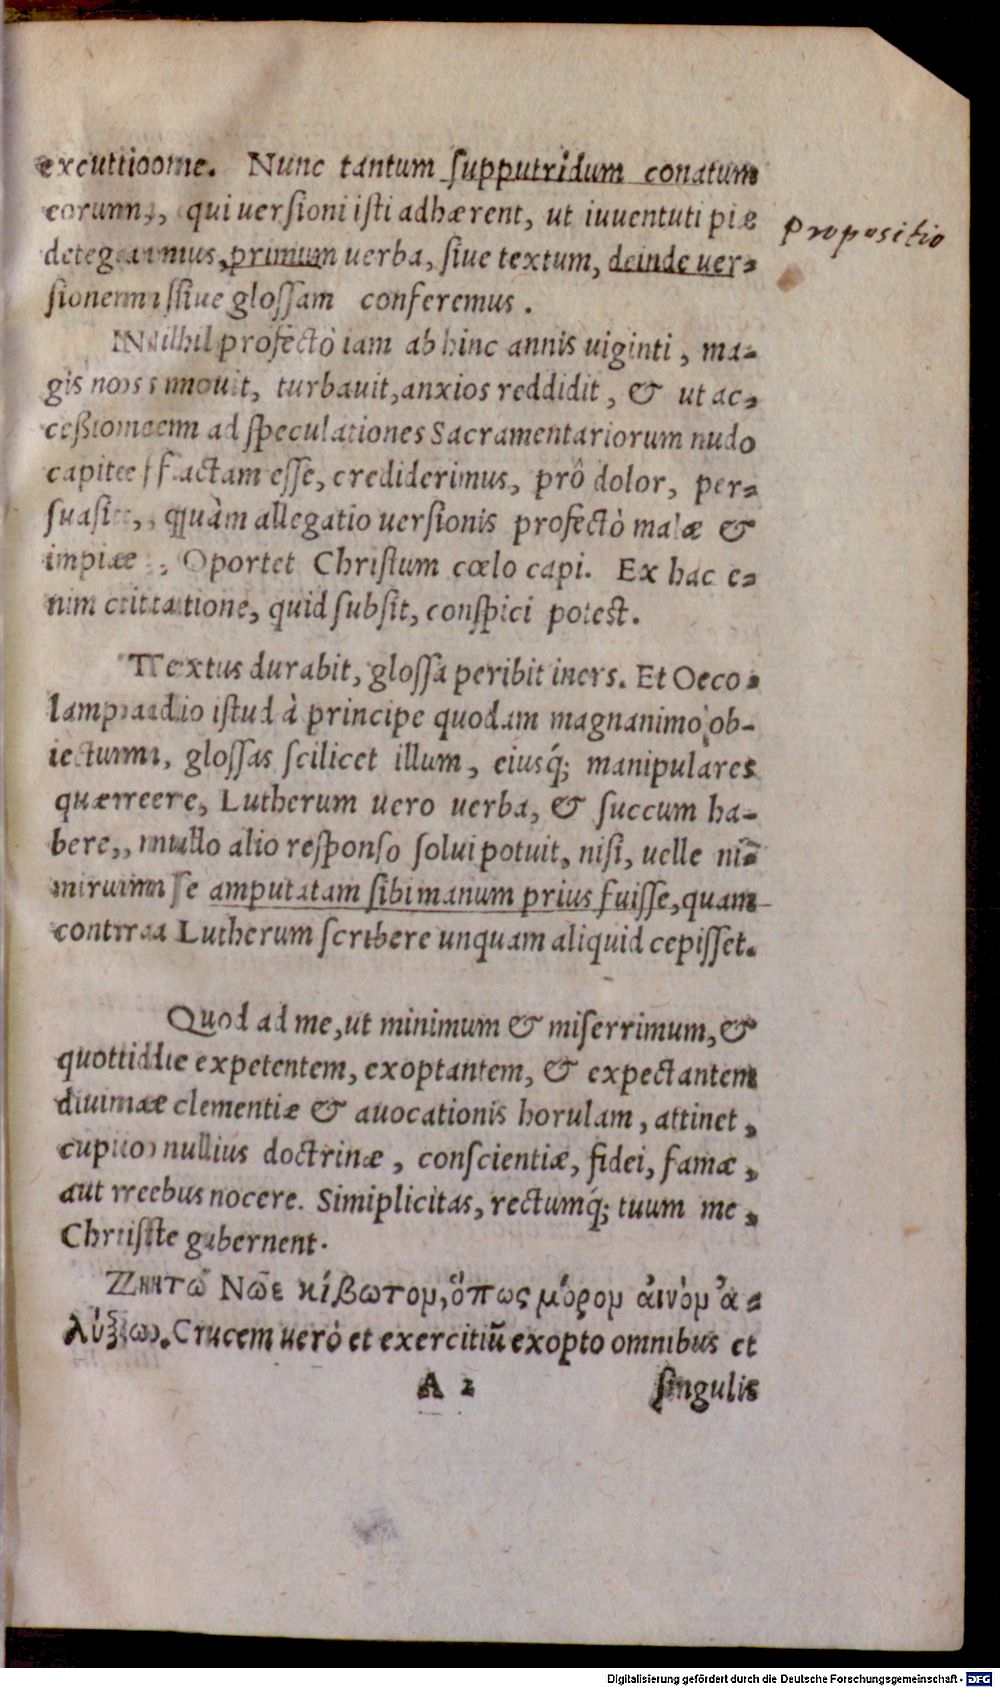 excuttioome. Nunc tantum supputridum conatum
eorum, qui uersioni isti adhærent, ut iuuentuti piæ
Propositio
detegamus, primum uerba, siue textum, deinde uer-
sionem siue glossam conferemus.
Nihil profectò iam abhinc annis uiginti, ma-
gis nos mouit, turbauit, anxios reddidit, & ut ac-
ceßionem ad speculationes Sacramentariorum nudo
capite factam esse, crediderimus, prô dolor, per-
suasit, quàm allegatio uersionis profectò malæ &
impiæ, Oportet Christum cœlo capi. Ex hac e-
nim citatione, quid subsit, conspici potest.
Textus durabit, glossa peribit iners. Et Oeco-
lampadio istud à principe quodam magnanimo ob-
iectum, glossas scilicet illum, eiusq́; manipulares
quærere, Lutherum uero uerba, & succum ha-
bere, nullo alio responso solui potuit, nisi, uelle ni-
mirum se amputatam sibi manum prius fuisse, quam
contra Lutherum scribere unquam aliquid cepisset.
Quod ad me, ut minimum & miserrimum, &
quottidie expetentem, exoptantem, & expectantem
diuinæ clementiæ & auocationis horulam, attinet,
cupio nullius doctrinæ, conscientiæ, fidei, famæ,
aut rebus nocere. Simiplicitas, rectumq́; tuum me,
Christe gubernent.
Ζητῶ Νῶε κίβωτον, ὅπως μόρον αἰνὸν ἀ-
λύξω. Crucem uerò et exercitiũ exopto omnibus et
A 2
singulis
Digitalisierung gefördert durch die Deutsche Forschungsgemeinschaft - DFG